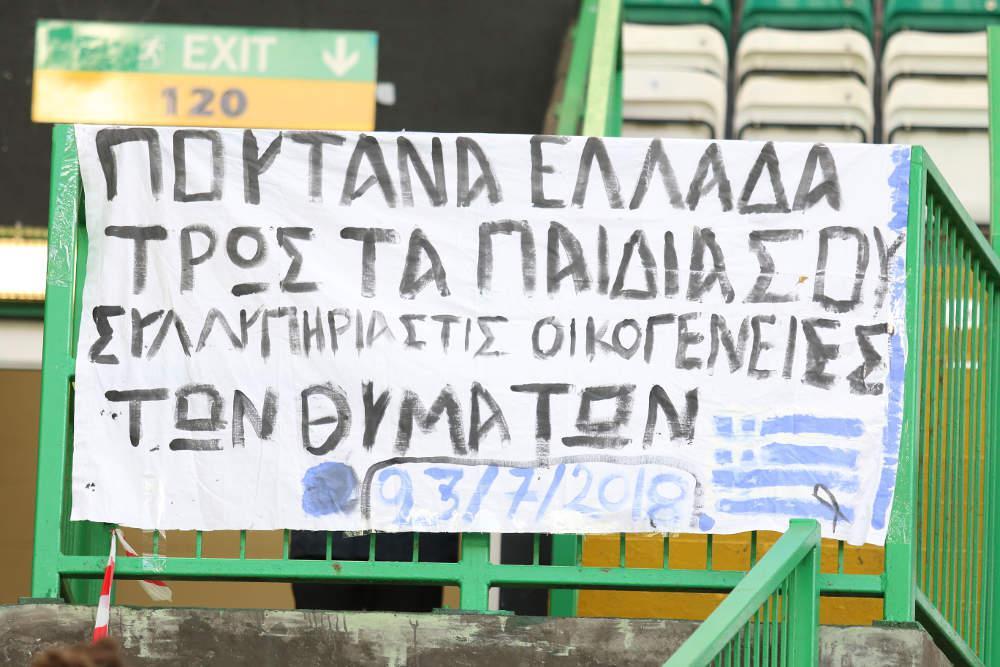 EXIT
120
ΠΟΥΤΑΝΑ ΕΛΛΑΔΑ
ΤΡΩΣ ΤΑ ΠΑΙΔΙΑ ΣΟΥ
ΣΥΛΛΥΠΗΡΙΑ ΣΤΙΣ ΟΙΚΟΓΕΝΕΙΕΣ
ΤΩΝ ΘΥΜΑΤΩΝ
23/7/2018